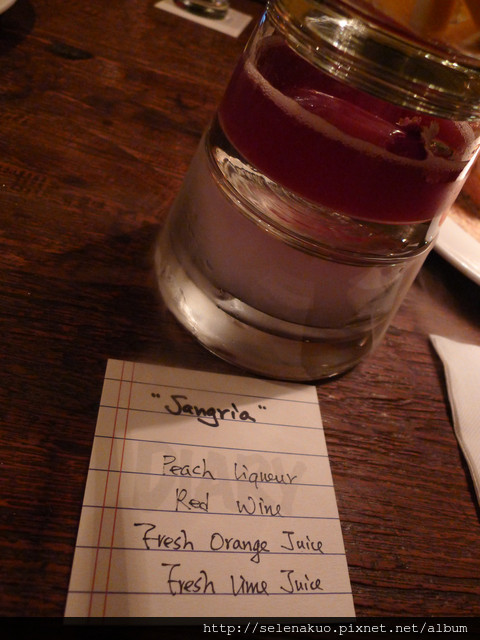 "Sangria"
Peach Liqueur
Red Wine
Fresh Orange Juice
Fresh Lime Juice
DIARY
http://selenakuo.pixnet.net/album